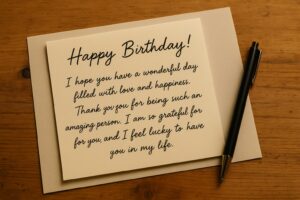 Happy Birthday!
I hope you have a wonderful day
filled with love and happiness.
Thank you you for being such an
amazing person. I am so grateful for
for you, and I feel lucky to have
you in my life.